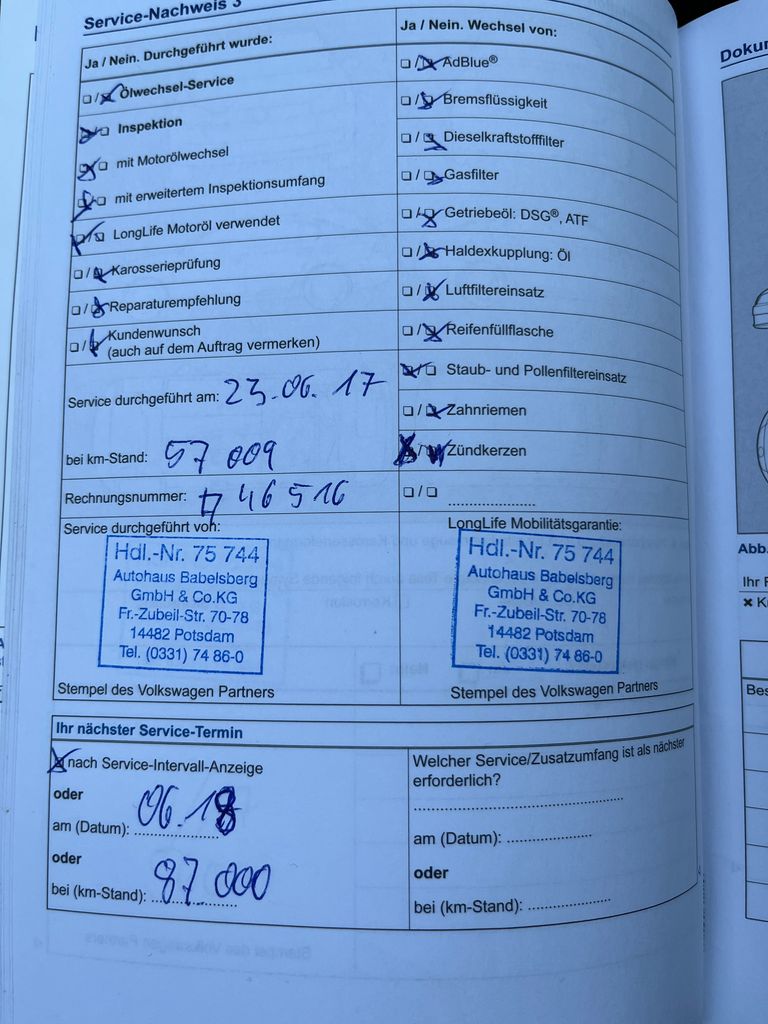 Service-Nachweis 3
Ja / Nein. Durchgeführt wurde:
Ölwechsel-Service
Inspektion
mit Motorölwechsel
mit erweitertem Inspektionsumfang
LongLife Motoröl verwendet
Karosserieprüfung
Reparaturempfehlung
Kundenwunsch
(auch auf dem Auftrag vermerken)
Service durchgeführt am: 23.06.17
bei km-Stand: 57 009
Rechnungsnummer: 46 516
Service durchgeführt von:
Hdl.-Nr. 75 744
Autohaus Babelsberg
GmbH & Co.KG
Fr.-Zubeil-Str. 70-78
14482 Potsdam
Tel. (0331) 74 86-0
Stempel des Volkswagen Partners
Ja / Nein. Wechsel von:
AdBlue®
Bremsflüssigkeit
Dieselkraftstofffilter
Gasfilter
Getriebeöl: DSG®, ATF
Haldexkupplung: Öl
Luftfiltereinsatz
Reifenfüllflasche
Staub- und Pollenfiltereinsatz
Zahnriemen
Zündkerzen
LongLife Mobilitätsgarantie:
Hdl.-Nr. 75 744
Autohaus Babelsberg
GmbH & Co.KG
Fr.-Zubeil-Str. 70-78
14482 Potsdam
Tel. (0331) 74 86-0
Stempel des Volkswagen Partners
Ihr nächster Service-Termin
nach Service-Intervall-Anzeige
oder
am (Datum): 06.18
oder
bei (km-Stand): 87 000
Welcher Service/Zusatzumfang ist als nächster
erforderlich?
am (Datum):
oder
bei (km-Stand):
Abb.